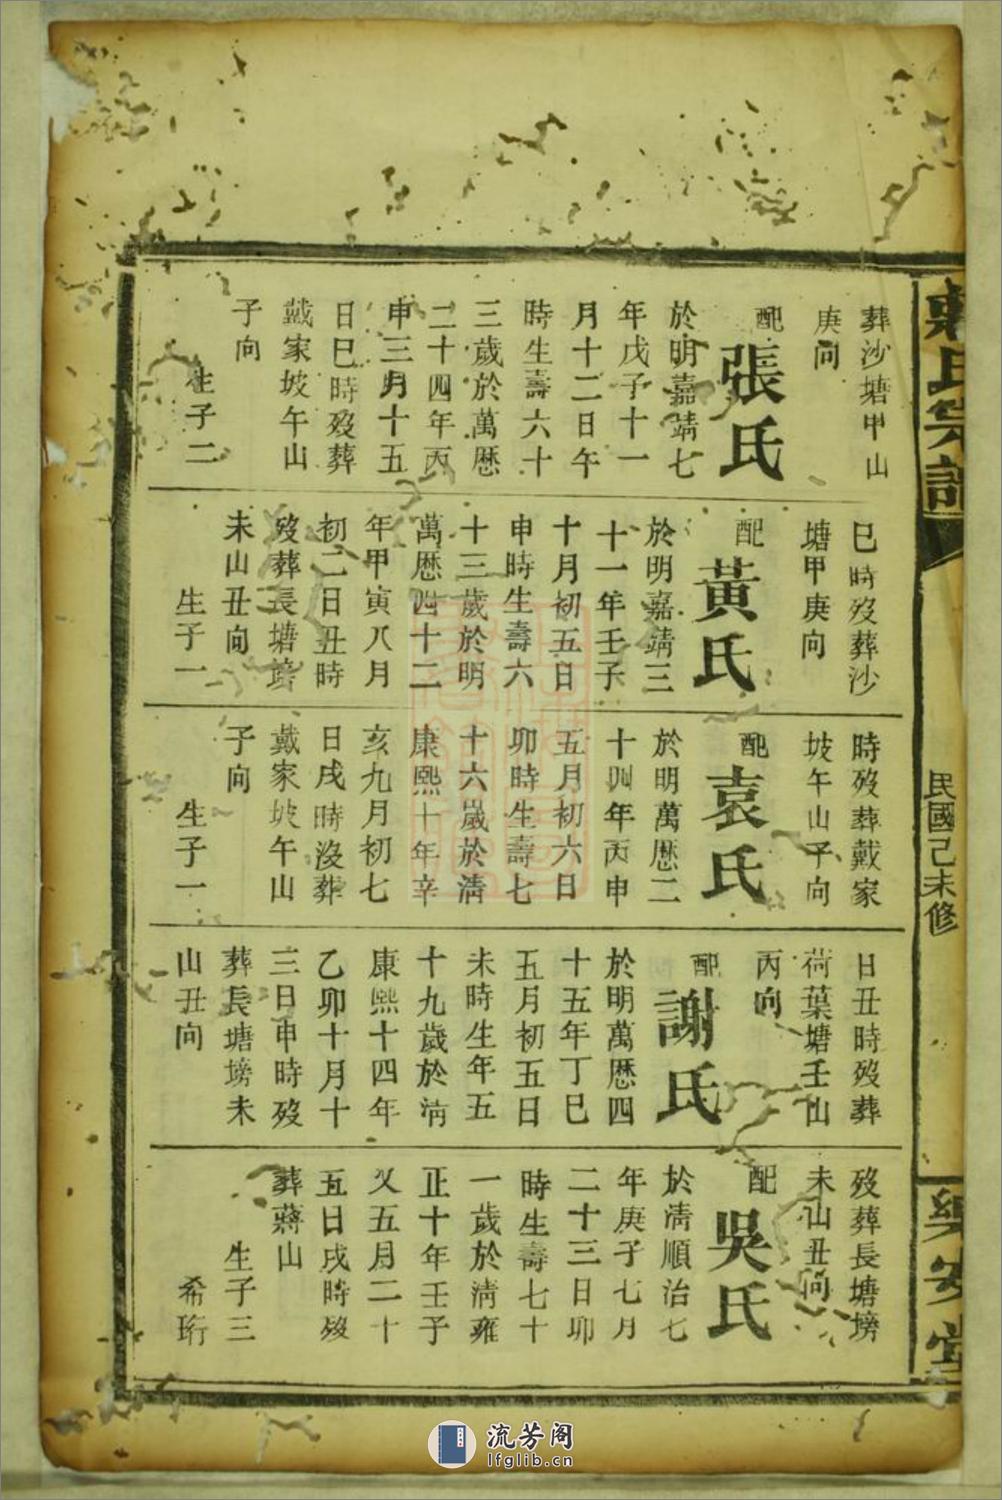 氏宗譜
民國己未修
樂安堂
葬沙塘甲山
庚向
配
張氏
於明嘉靖七
年戊子十一
月十二日午
時生壽六十
三歲於萬歷
二十四年丙
申三月十五
日巳時歿葬
戴家坡午山
子向
生子二
巳時歿葬沙
塘甲庚向
配
黃氏
於明嘉靖三
十一年壬子
十月初五日
申時生壽六
十三歲於明
萬歷四十二
年甲寅八月
初二日丑時
歿葬長塘塝
未山丑向
生子一
時歿葬戴家
坡午山子向
配
袁氏
於明萬歷二
十四年丙申
五月初六日
卯時生壽七
十六歲於清
康熙十年辛
亥九月初七
日戌時沒葬
戴家坡午山
子向
生子一
日丑時歿葬
荷葉塘壬山
丙向
配
謝氏
於明萬歷四
十五年丁巳
五月初五日
未時生年五
十九歲於清
康熙十四年
乙卯十月十
三日申時歿
葬長塘塝未
山丑向
歿葬長塘塝
未山丑向
配
吳氏
於清順治七
年庚子七月
二十三日卯
時生壽七十
一歲於清雍
正十年壬子
又五月二十
五日戌時歿
葬蔣山
生子三
希珩
流芳阁
lfglib.cn